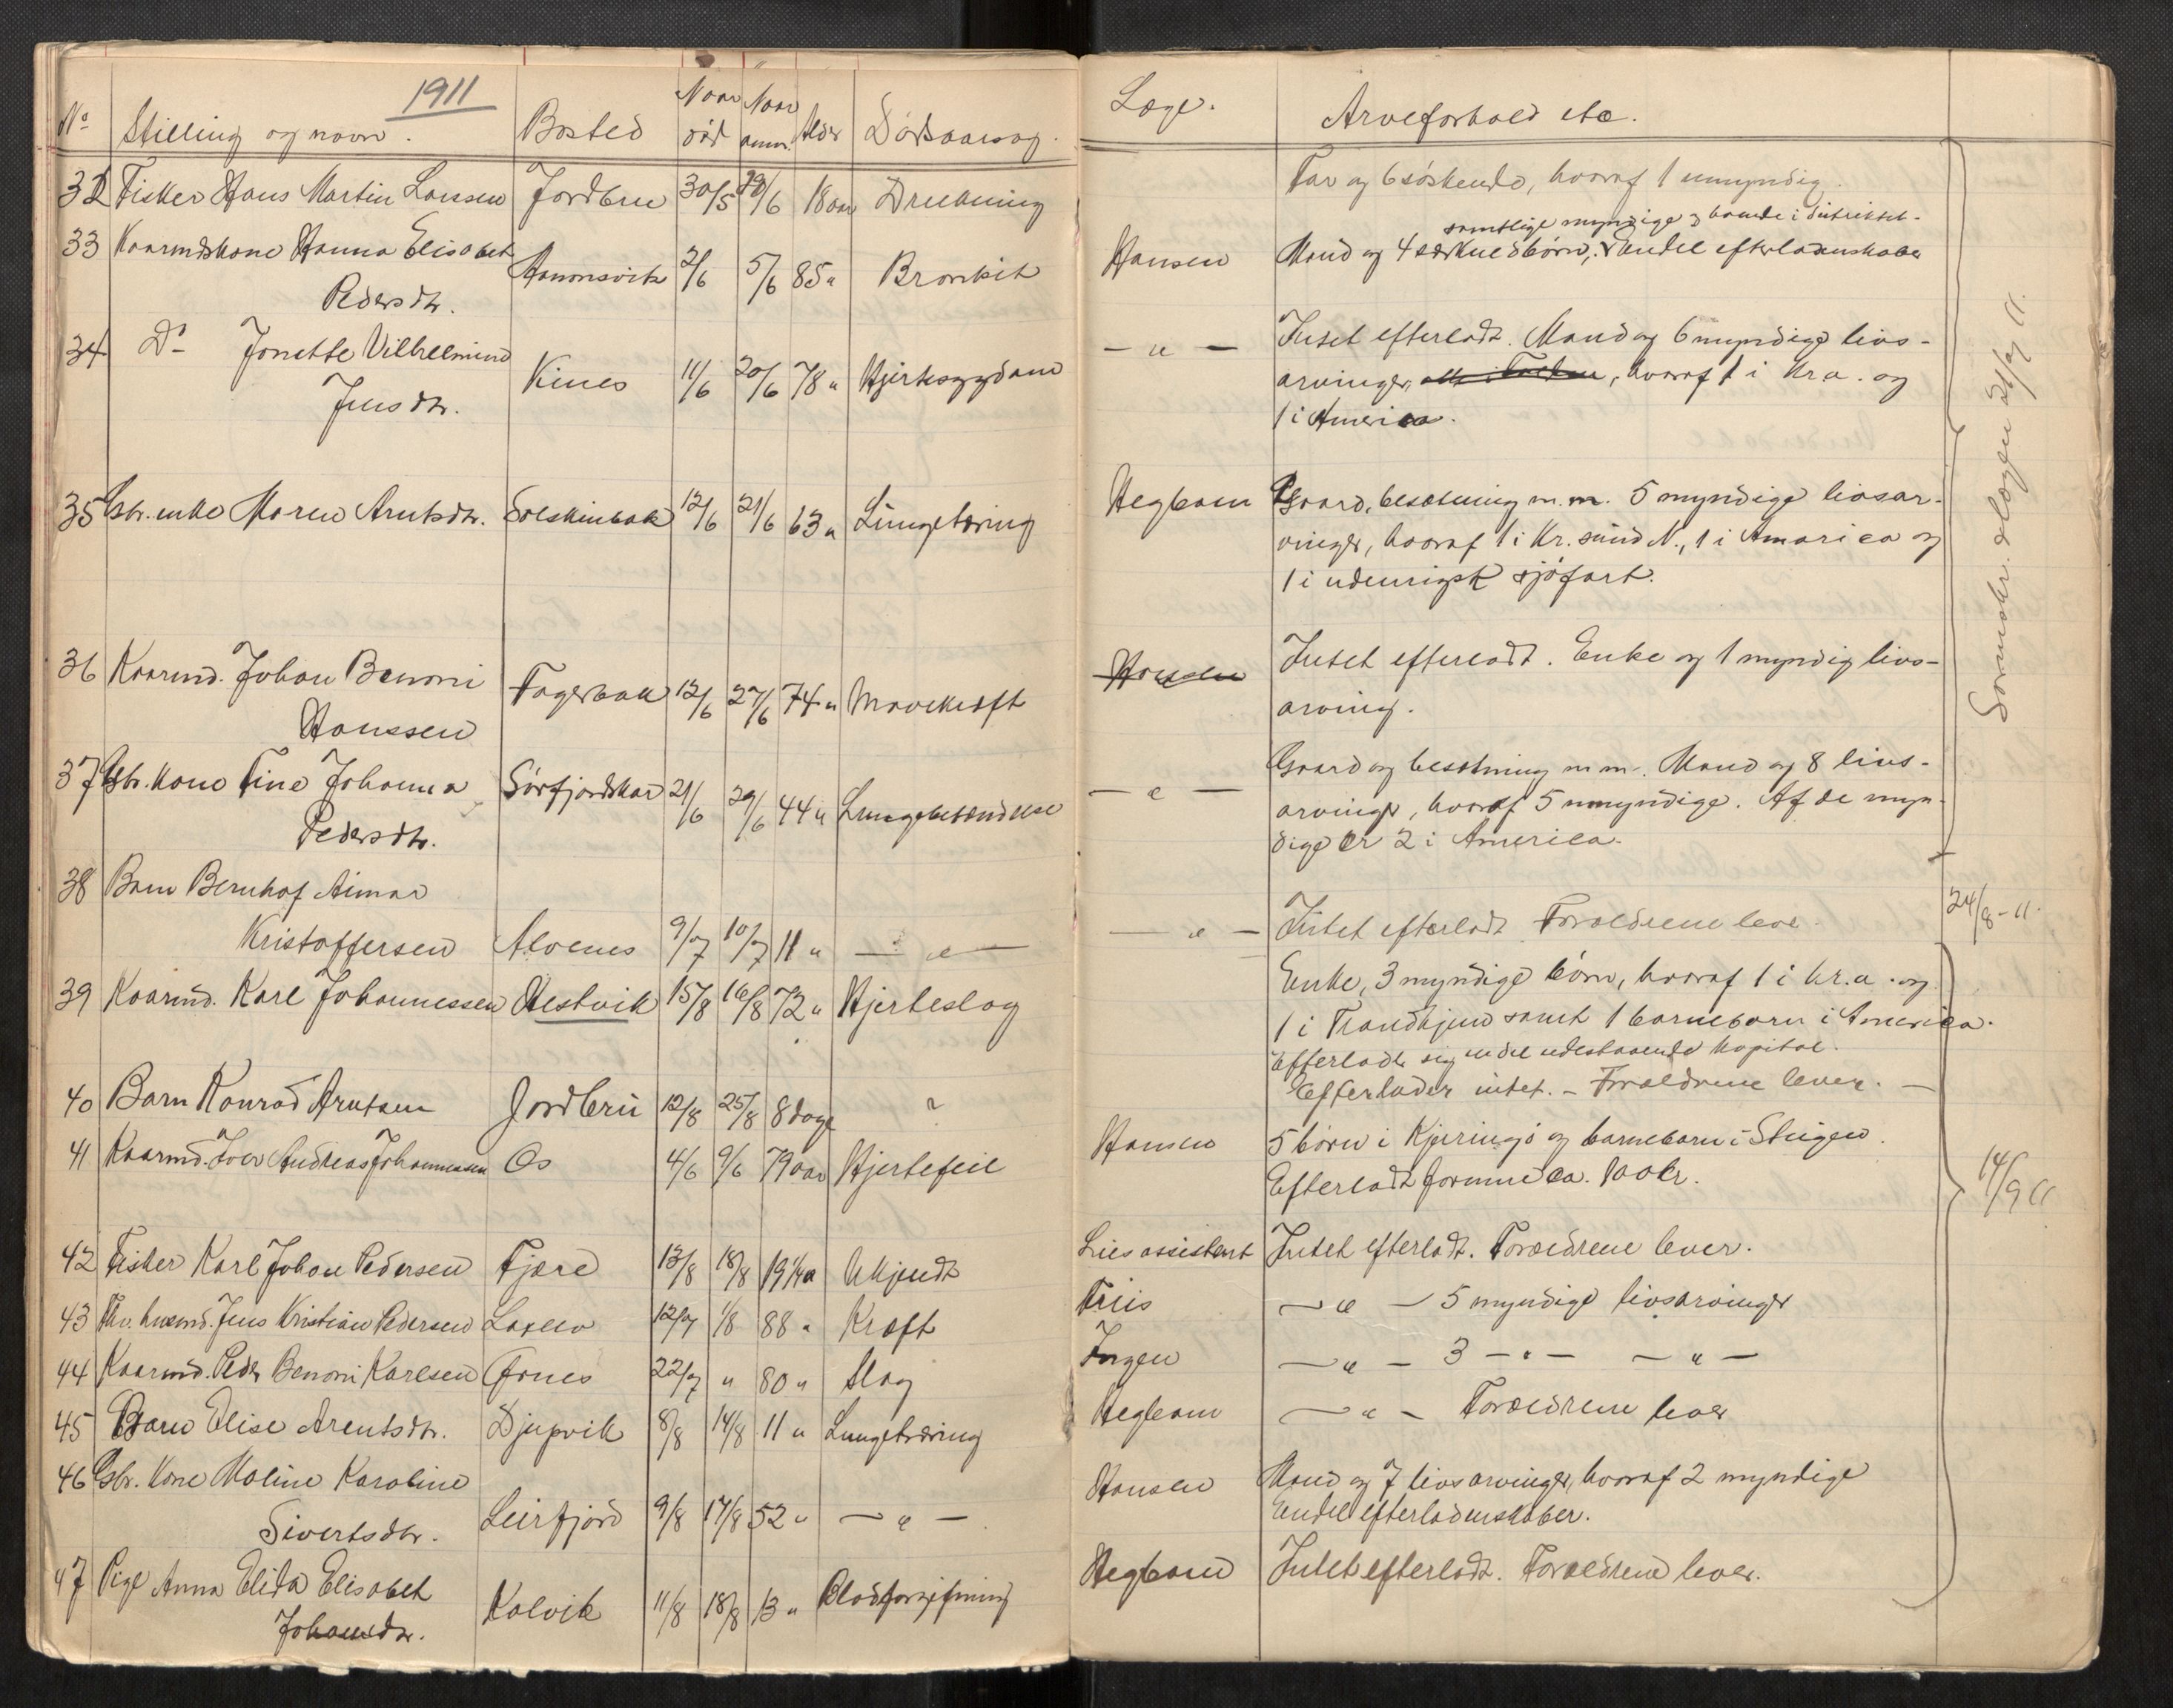 1911
No Stilling og navn. Bosted Naar død Naar anm. Alder Dødsaarsag.
32 Fisker Hans Martin Larssen Jordbru 30/5 19/6 18 aar Drukning
33 Kaarmdskone Hanna Elisabet
Pedersdtr. Aanonsvik 2/6 5/6 85 " Bronkit
34 Do Jonette Vilhelmine
Jensdtr. Kines 11/6 20/6 78 " Hjertesygdom
35 Gbr. enke Maren Arntsdtr. Solskinbak 12/6 21/6 63 " Lungetæring
36 Kaarmd. Johan Benoni
Hanssen Fagerbak 12/6 27/6 74 " Mavekræft
37 Gbr. kone Tine Johanna
Pedersdtr. Sørfjordskar 21/6 29/6 44 " Lungebetændelse
38 Barn Bernhof Aimar
Kristoffersen Alvenes 9/7 10/7 11 " — " —
39 Kaarmd. Karl Johannessen Hestvik 15/8 16/8 72 " Hjerteslag
40 Barn Konrad Arntsen Jordbru 12/8 25/8 8 dage ?
41 Kaarmd. Iver Andreas Johannessen Os 4/6 9/6 79 aar Hjertefeil
42 Fisker Karl Johan Pedersen Fjære 13/8 18/8 19 1/4 a Ukjendt
43 Fhv. husmd. Jens Kristian Pedersen 12/7 1/8 88 " Kræft
44 Kaarmd. Peder Benoni Karlsen 22/7 " 80 " Slag
45 Barn Elise Arentsdtr. Djupvik 8/8 14/8 11 " Lungetæring
46 Gbr. kone Maline Karoline
Sivertsdtr. Leirfjord 9/8 17/8 52 " — " —
47 Pige Anna Elida Elisabet
Johansdtr. Kalvik 11/8 18/8 13 " Blodforgiftning
Læge. Arveforhold etc.
Far og 6 søskende, hvoraf 1 umyndig.
samtlige myndige og boende i distriktet.
Hansen Mand og 4 særkuldsbørn, Endel efterladenskaber
— " — Intet efterladt. Mand og 6 myndige livs-
arvinger, hvoraf 1 i Kr.a. og
1 i America.
Hegbom Gaard, besætning m.m. 5 myndige livsar-
vinger, hvoraf 1 i Kr.sund N., 1 i America og
1 i udenrigsk sjøfart.
Hansen Intet efterladt. Enke og 1 myndig livs-
arving.
— " — Gaard og besætning m.m. Mand og 8 livs-
arvinger, hvoraf 5 umyndige. Af de myn-
dige er 2 i America.
— " — Intet efterladt Forældrene lever.
Enke, 3 myndige børn, hvoraf 1 i Kr.a. og
1 i Trondhjem samt 1 barnebarn i America.
Efterladt sig endel udestaaende kapital.
Efterlader intet. – Forældrene lever. —
Hansen 5 børn i Kjerringø og barnebarn i Steigen.
Efterladt formue ca. 100 kr.
Liesassistent Intet efterladt. Forældrene lever.
Friis — " — 5 myndige livsarvinger
Ingen — " — 3 — " — — " —
Hegbom — " — Forældrene lever
Hansen Mand og 7 livsarvinger, hvoraf 2 myndige
Endel efterladenskaber.
Hegbom Intet efterladt. Forældrene lever.
Sorenskr. 21/7 11.
24/8-11.
14/9 11